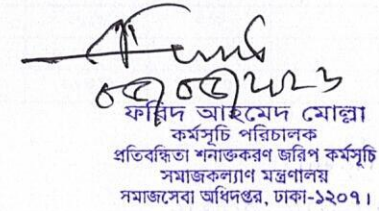 ফরিদ আহমেদ মোল্লা
কর্মসূচি পরিচালক
প্রতিবন্ধিতা শনাক্তকরণ জরিপ কর্মসূচি
সমাজকল্যাণ মন্ত্রণালয়
সমাজসেবা অধিদপ্তর, ঢাকা-১২০৭।